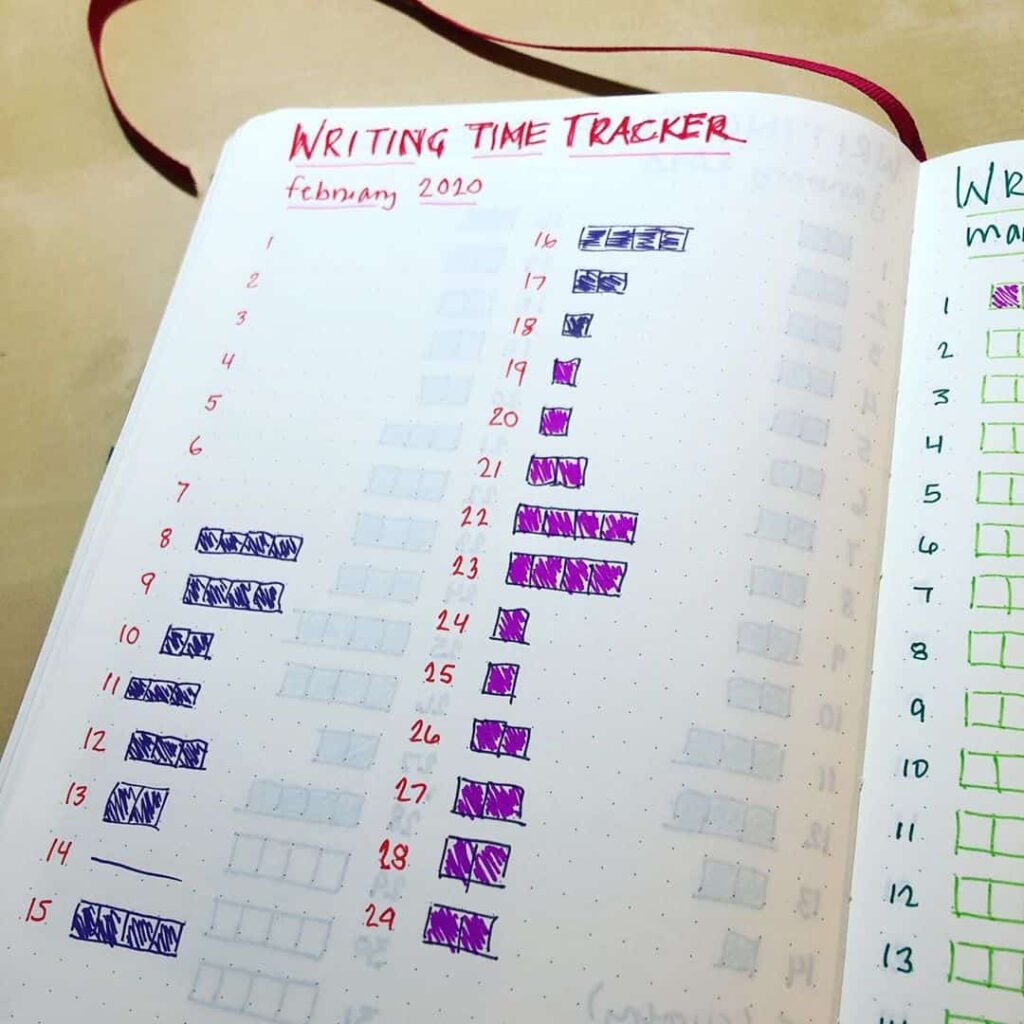 WRITING TIME TRACKER
february 2020
1
2
3
4
5
6
7
8
9
10
11
12
13
14
15
16
17
18
19
20
21
22
23
24
25
26
27
28
29
WR
mar
1
2
3
4
5
6
7
8
9
10
11
12
13